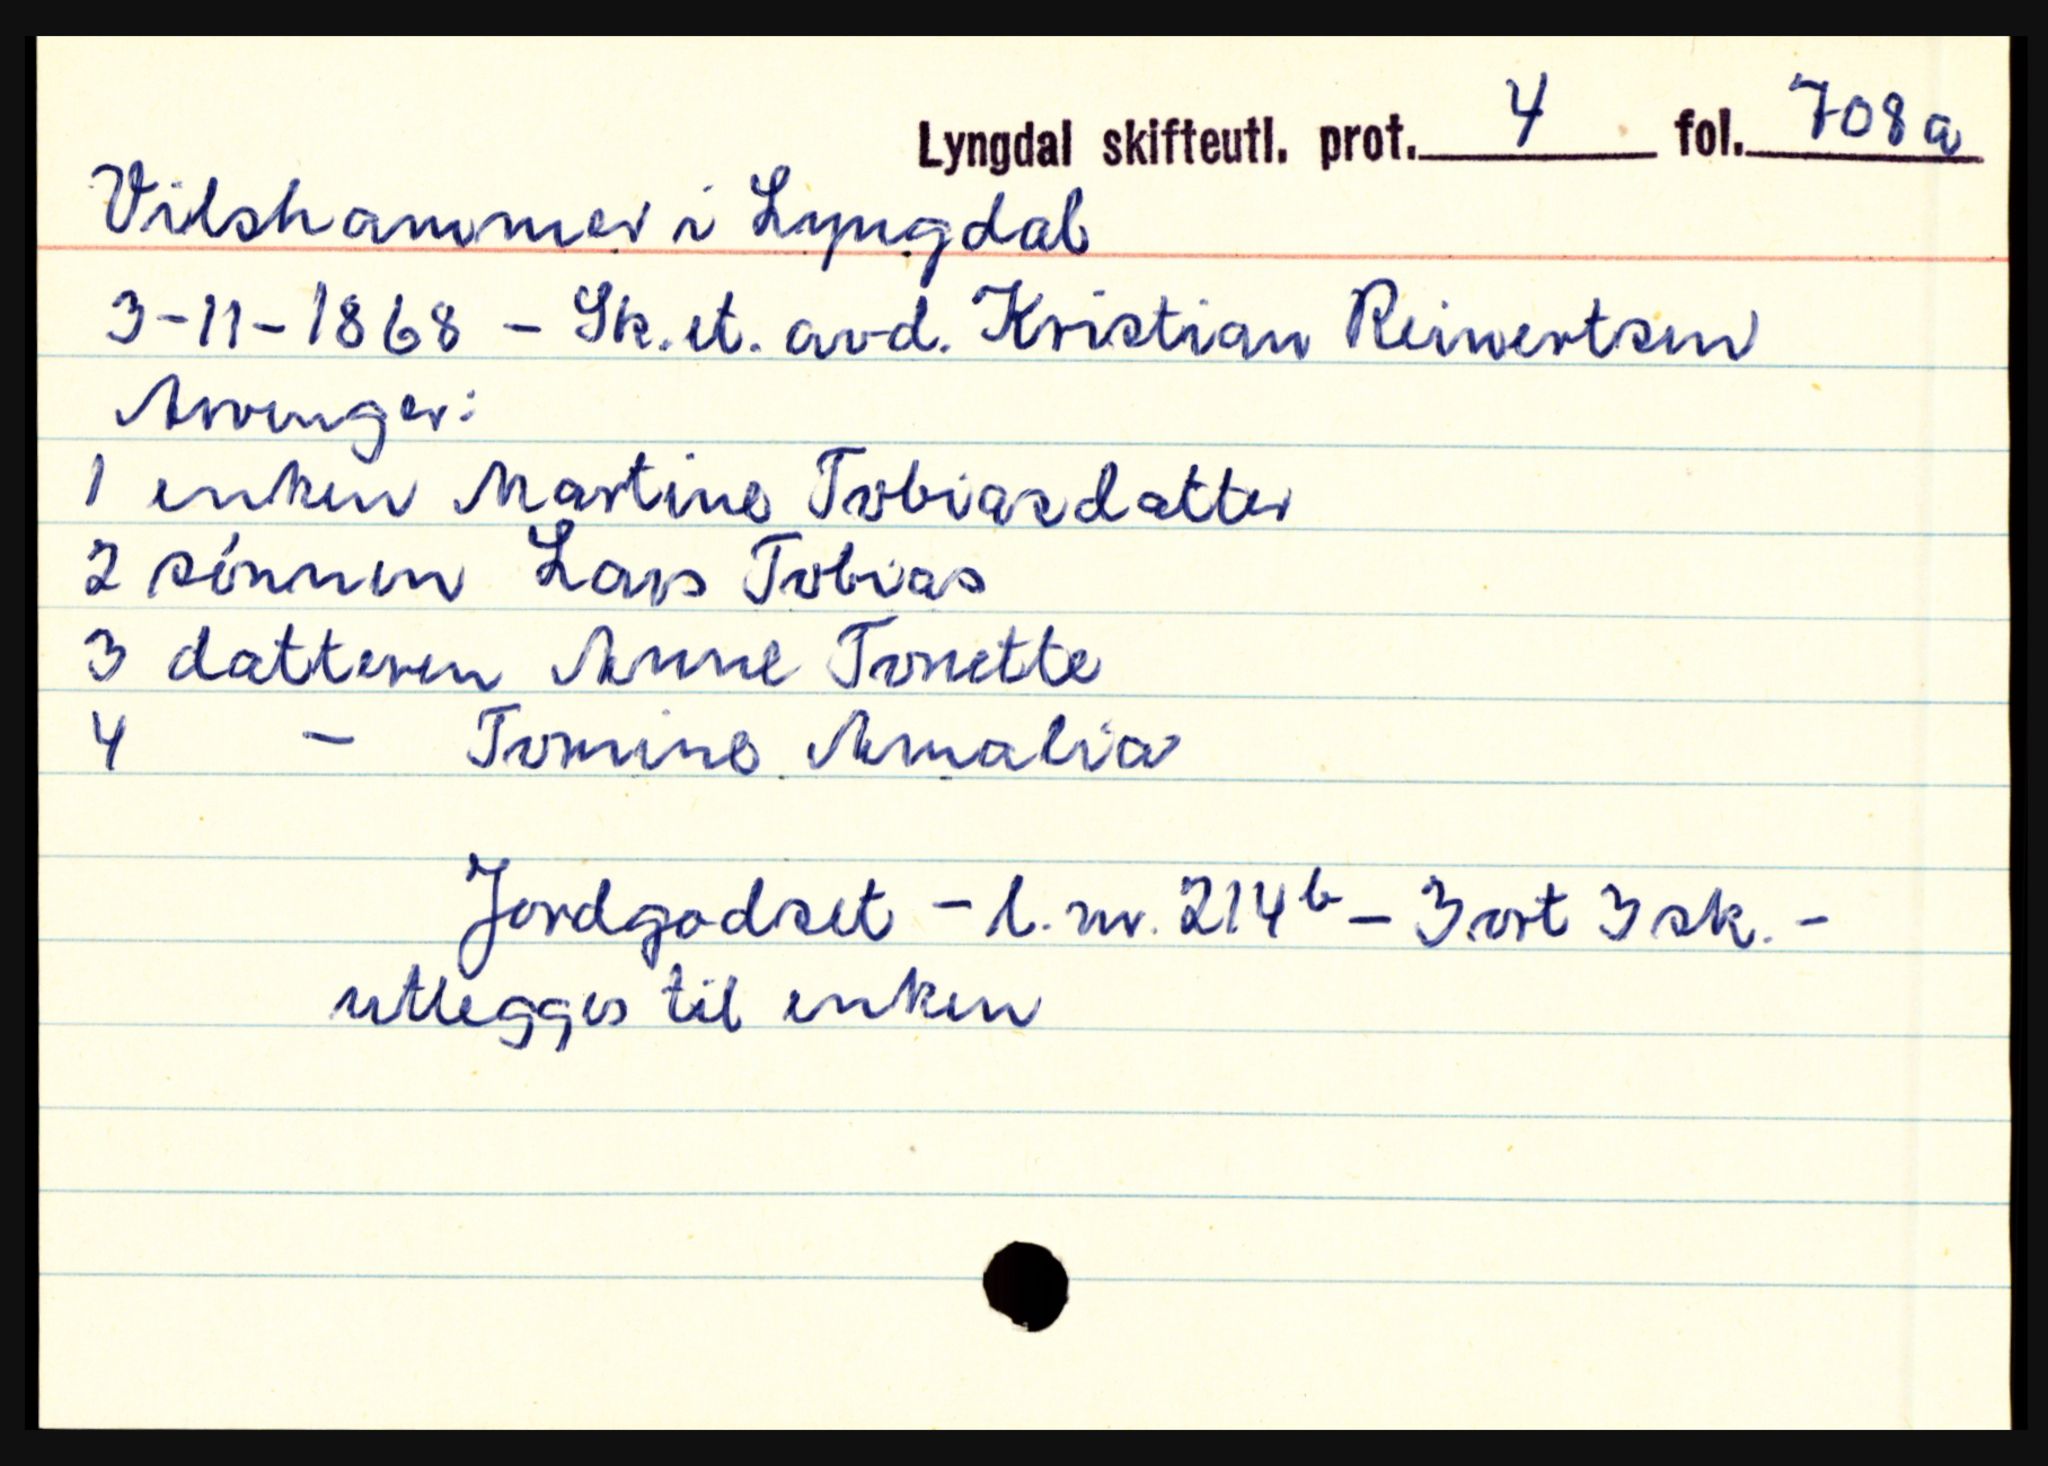 Lyngdal skifteutl. prot. 4 fol. 708a
Vilshammer i Lyngdal
3-11-1868 - Sk. et. avd. Kristian Reinertsen
Arvinger:
1 enken Martine Tobiasdatter
2 sønnen Lars Tobias
3 datteren Anne Tonette
4 - Tomine Amalia
Jordgodset - l. nr. 214b - 3 ort 3 sk. -
utlegges til enken